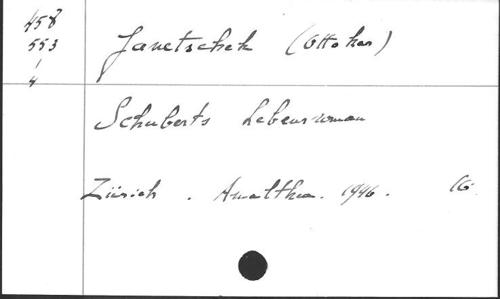 458
553
/
4
Janetschek (Ottokar)
Schuberts Lebensroman
Zürich . Amalthea. 1946. 16